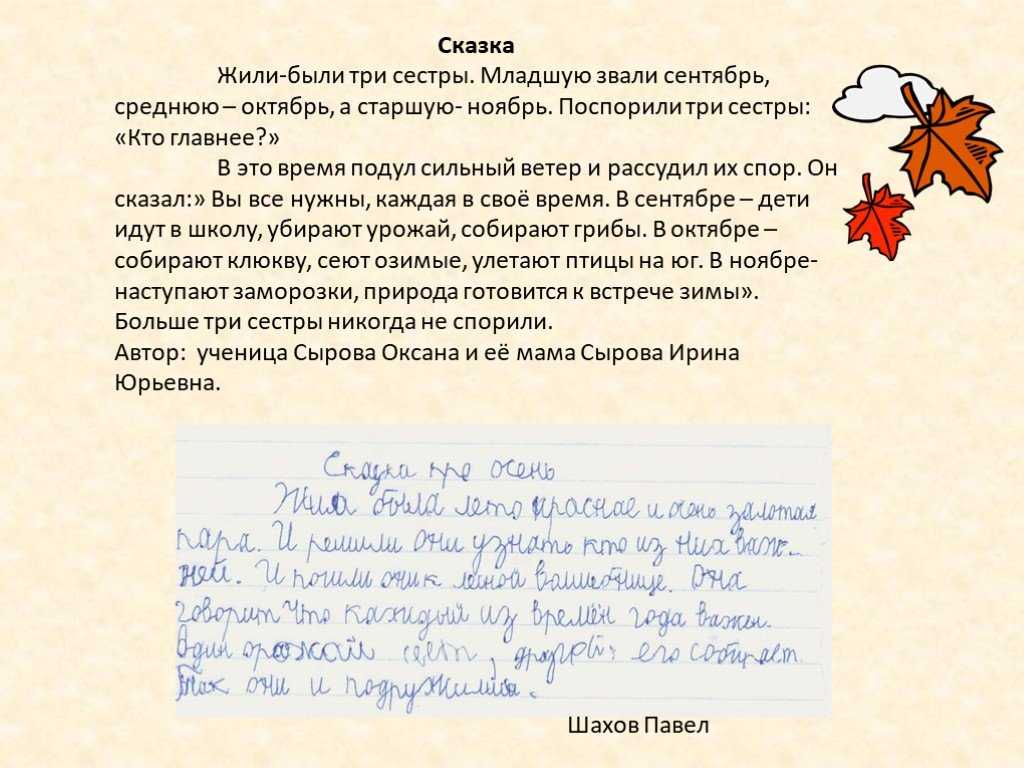 Сказка
Жили-были три сестры. Младшую звали сентябрь,
среднюю – октябрь, а старшую- ноябрь. Поспорили три сестры:
«Кто главнее?»
В это время подул сильный ветер и рассудил их спор. Он
сказал:» Вы все нужны, каждая в своё время. В сентябре – дети
идут в школу, убирают урожай, собирают грибы. В октябре –
собирают клюкву, сеют озимые, улетают птицы на юг. В ноябре-
наступают заморозки, природа готовится к встрече зимы».
Больше три сестры никогда не спорили.
Автор: ученица Сырова Оксана и её мама Сырова Ирина
Юрьевна.
Сказка пре осень
Жила была лето красное и осень залотая
пара. И решили они узнать кто из них важ-
ней. И пошли они к лесной волшебнице. Она
говорит что каждый из времён года важен.
Один сеет, другой его собирает.
Так они и подружились.
Шахов Павел